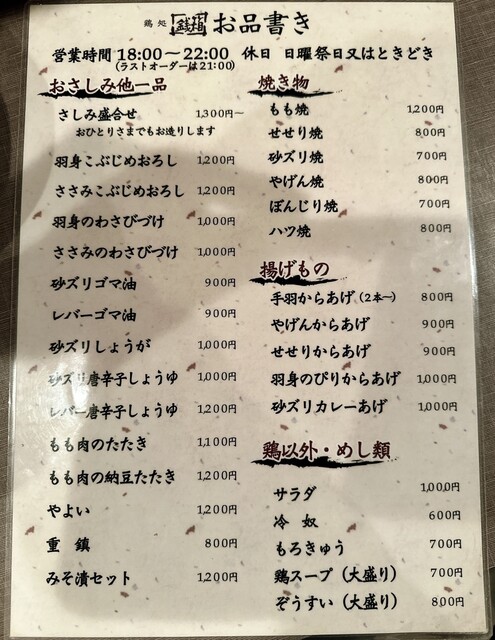 鶏処 銭箱 お品書き
営業時間 18:00～22:00 休日 日曜祭日又はときどき
(ラストオーダーは21:00)
おさしみ他一品
さしみ盛合せ 1,300円～
おひとりさまでもお造りします
羽身こぶじめおろし 1,200円
ささみこぶじめおろし 1,200円
羽身のわさびづけ 1,000円
ささみのわさびづけ 1,000円
砂ズリゴマ油 900円
レバーゴマ油 900円
砂ズリしょうが 1,000円
砂ズリ唐辛子しょうゆ 1,000円
レバー唐辛子しょうゆ 1,200円
もも肉のたたき 1,100円
もも肉の納豆たたき 1,200円
やよい 1,200円
重鎮 800円
みそ漬セット 1,200円
焼き物
もも焼 1,200円
せせり焼 800円
砂ズリ焼 700円
やげん焼 800円
ぼんじり焼 700円
ハツ焼 800円
揚げもの
手羽からあげ(2本～) 800円
やげんからあげ 900円
せせりからあげ 900円
羽身のぴりからあげ 1,000円
砂ズリカレーあげ 1,000円
鶏以外・めし類
サラダ 1,000円
冷奴 600円
もろきゅう 700円
鶏スープ(大盛り) 700円
ぞうすい(大盛り) 800円